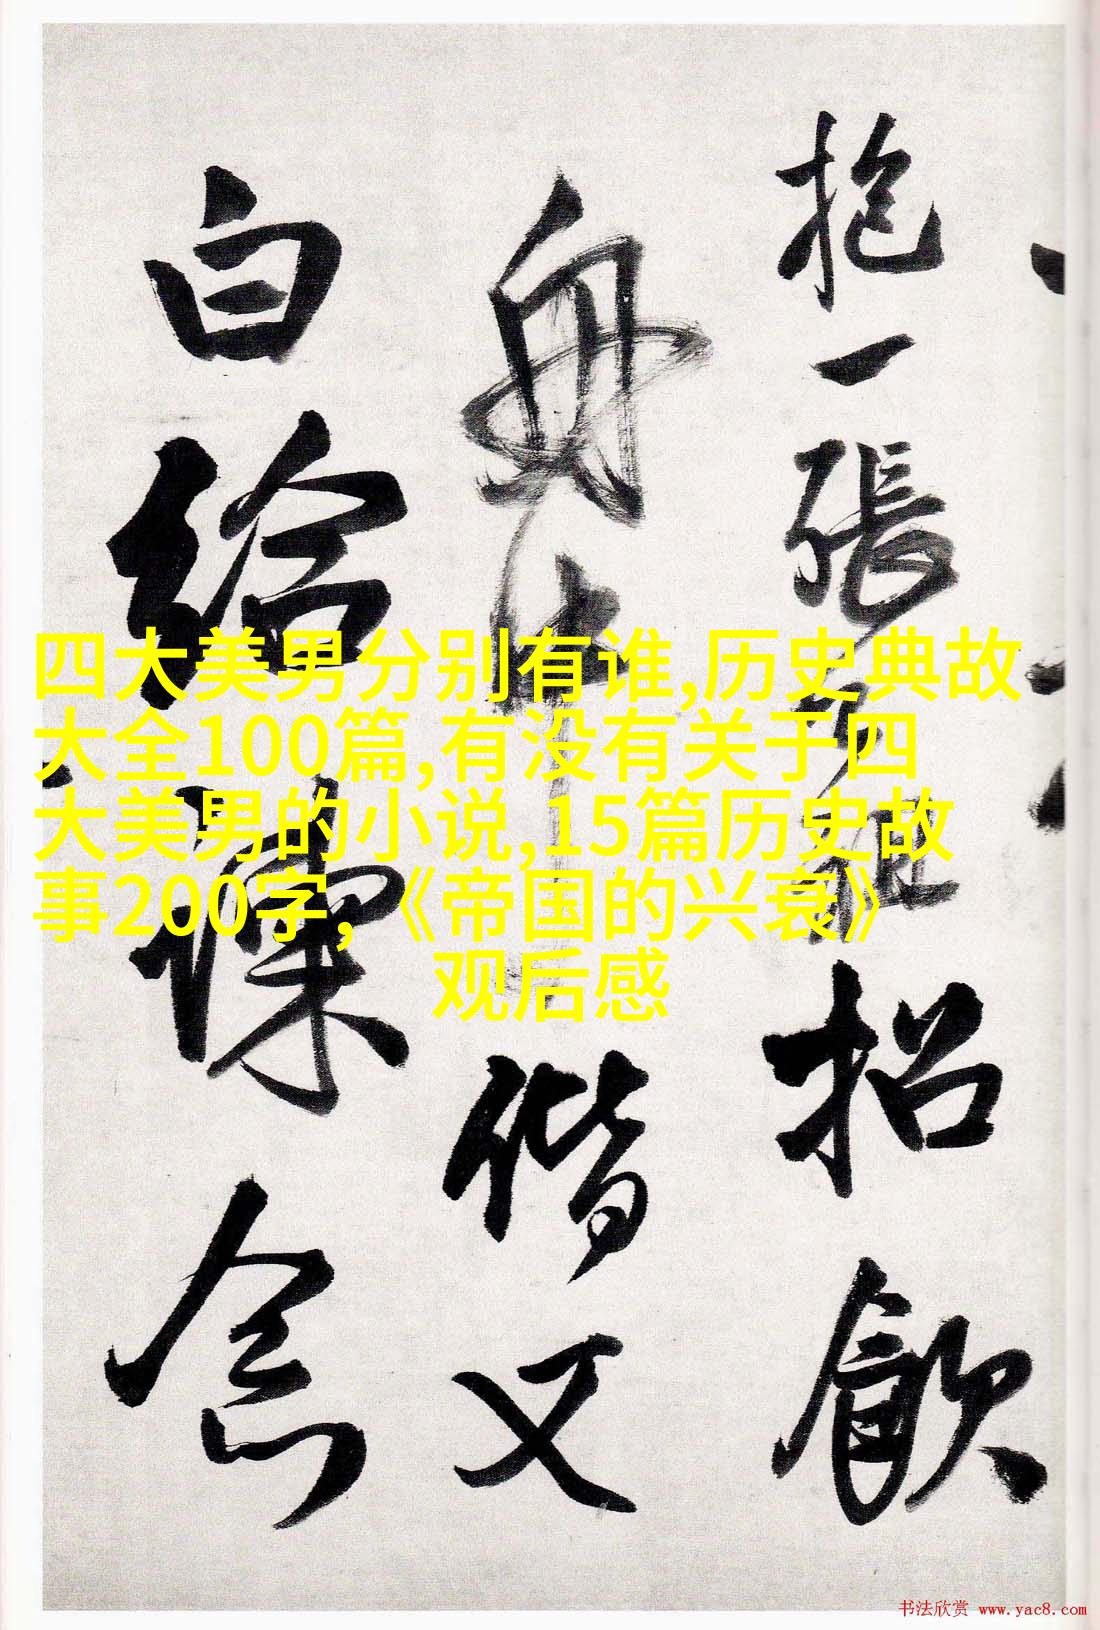 四大美男分别有谁,历史典故
大全100篇,有没有关于四
大美男的小说,15篇历史故
事200字,《帝国的兴衰》
观后感
抱一張
招飲
舟
偕又
白給諫
念
书法欣赏 www.yac8.com